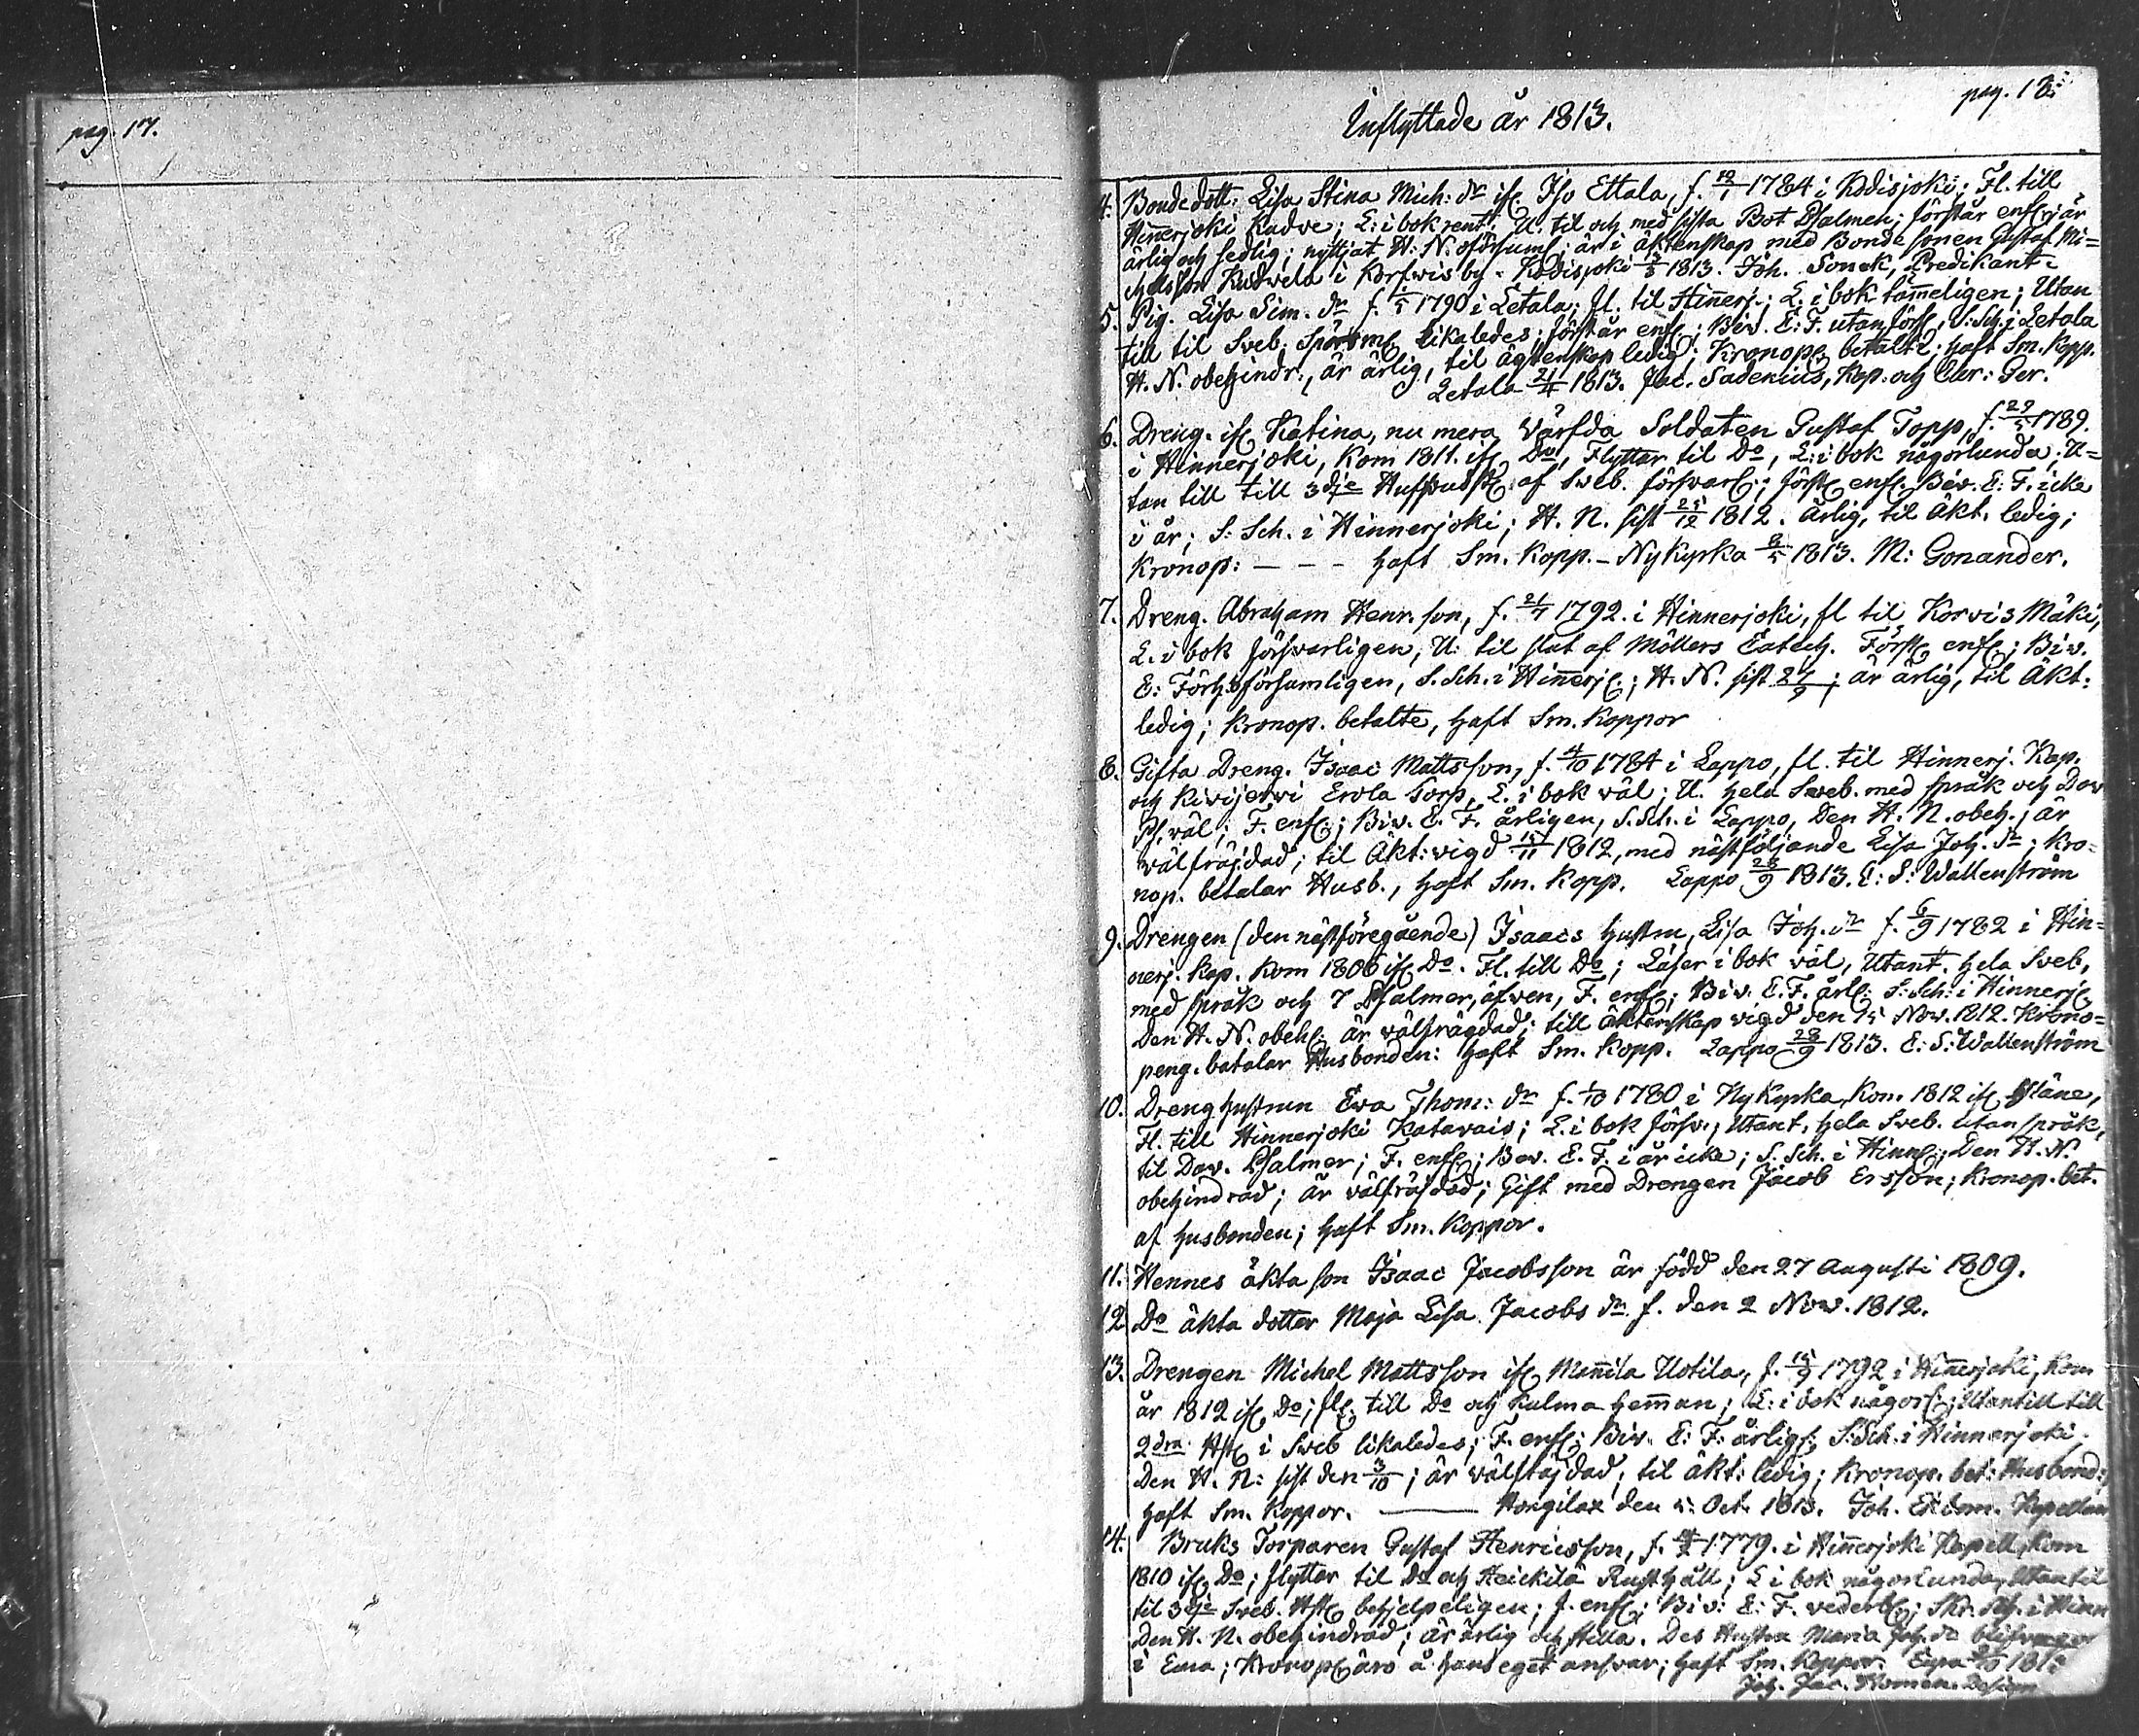 pag. 17.
pag. 18.
Inflyttade år 1813.
4. Bonde dott: Lisa Stina Mich: dr ifr. Iso Ettala, f. 19/1 1784 i Kodisjoki; Fl. till
Hinnerjoki Kadve; L: i bok rent; U. til och med sista Bot Psalmen; förstår enf; är
ärlig och sedlig; nyttjat H: N. oförsuml; är i äktenskap med Bonde sonen Gustaf Mi=
chelsson Kadvela i Korfwis by. Kodisjoki 1813. Joh. Sonck, Predikant.
5. Pig. Lisa Sim. dr f. 1/5 1790 i Letala; fl. til Hinnerj.; L. i bok tämmeligen; Utan
till til Sveb. Spörsm likaledes; förstår enf; Biv. E: F. utan förf; S: Sch. i Letala
H. N. obehindr:, är ärlig, til ägtenskap ledig; Kronop betalte; haft Sm. Kopp.
Letala 21/4 1813. Jac. Sadenius, Kap: och Chr: Ger.
6. Dreng. ifr Katina, nu mera Värfda Soldaten Gustaf Topp, f. 29/5 1789.
i Hinnerjoki, Kom 1811. ifr Do, Flyttar til Do, L: i bok någorlunda; U=
tan till till 3dje Hufvudst af Sveb. försvarl; först enf; Biv. E: F. icke
i år; S: Sch. i Hinnerjoki; H. N. sist 25/12 1812. Ärlig, til Äkt. ledig;
Kronop: - - - haft Sm. Kopp. - Nykyrka 8/5 1813. M: Gonander.
7. Dreng. Abraham Henr. son, f. 21/7 1792. i Hinnerjoki, fl til Korvis Mäki,
L. i bok försvarligen, U: til slut af Möllers Catech. Först enf; Biv.
E: Förh: oförsumligen, S. Sch. i Hinnerj.; H. N. sist 27/9; är ärlig, til Äkt:
ledig; Kronop. betalte, haft Sm. Koppor
8. Gifta Dreng. Isaac Mattsson, f. 4/10 1784 i Lappo, fl. til Hinnerj. Kap.
och Kivijervi Erola torp, L. i bok väl; U. hela Sweb. med språk och Dav
Ps. väl; F. enf; Biv. E. F. årligen, S. Sch. i Lappo, Den H. N. obeh.; är
välfräjdad; til Äkt: vigd 15/11 1812, med nästföljande Lisa Joh. dr; Kro=
nop. betalar Husb., haft Sm. Kopp. Lappo 28/9 1813. E: S: Wallenström
9. Drengen (den nästföregående) Isaacs hustru, Lisa Joh. dr f. 6/9 1782 i Hin=
nerj. Kap. Kom 1806 ifr Do. Fl. till Do; Läser i bok väl, Utant. hela Sveb,
med språk och 7 Psalmer, äfven, F. enf; Biv. E. F. årl; S: Sch: i Hinnerj
Den H. N. obeh är välfrägdad; till äktenskap vigd den 15 Nov. 1812. Krono=
peng. betalar Husbonden: haft Sm. Kopp. Lappo 28/9 1813. E: S: Wallenström
10. Dreng hustrun Eva Thom: dr f. 1/10 1780 i Nykyrka, Kom. 1812 ifr,
Fl. till Hinnerjoki Katavais; L. i bok försv.; Utant. hela Sveb. utan språk,
til Dav. Psalmer; F. enf; Bev. E. F. i år icke; S. Sch. i Hinn; Den H. N.
obehindrad; är välfräjdad; Gift med Drengen Jacob Ersson; Kronop. bet.
af husbonden; haft Sm. Koppor.
11. Hennes äkta son Isaac Jacobsson är född den 27 Augusti 1809.
12. Do äkta dotter Maja Lisa Jacobs dr f. den 2 Nov. 1812.
13. Drengen Michel Mattsson ifr Mannila Uotila, f. 15/9 1792 i Hinnerjoki, Kom
år 1812 ifr Do; fl. till Do och Kulma hemman; L: i bok någorl; Utantill till
2dra Hst i Sveb likaledes; F. enf; Biv. E: F: årlig; S: Sch. i Hinnerjoki.
Den H. N: sist den 3/10; är välfräjdad, til äkt: ledig; Kronop. bet: Husbond;
haft Sm. Koppor. Hongilax den 5. Oct. 1813. Joh. Ekbom. Kapellan
14. Bruks Torparen Gustaf Henricsson, f. 1779. i Hinnerjoki Kapell, Kom
1810 ifr Do; flyttar til Do och Heickilä Rusthåll; L i bok någorlunda, Utantil
til 3dje Sveb. Hst behjelpeligen; f. enf; Biv: E: F. vederb; Skr. Sch. i Hinn
Den H. N. obehindrad; är ärlig och stilla. Des Hustru Maria Joh. dr
i Eura; Kronop äro å hans eget ansvar; haft Sm. Koppor. Eura 181
Joh. Jac.